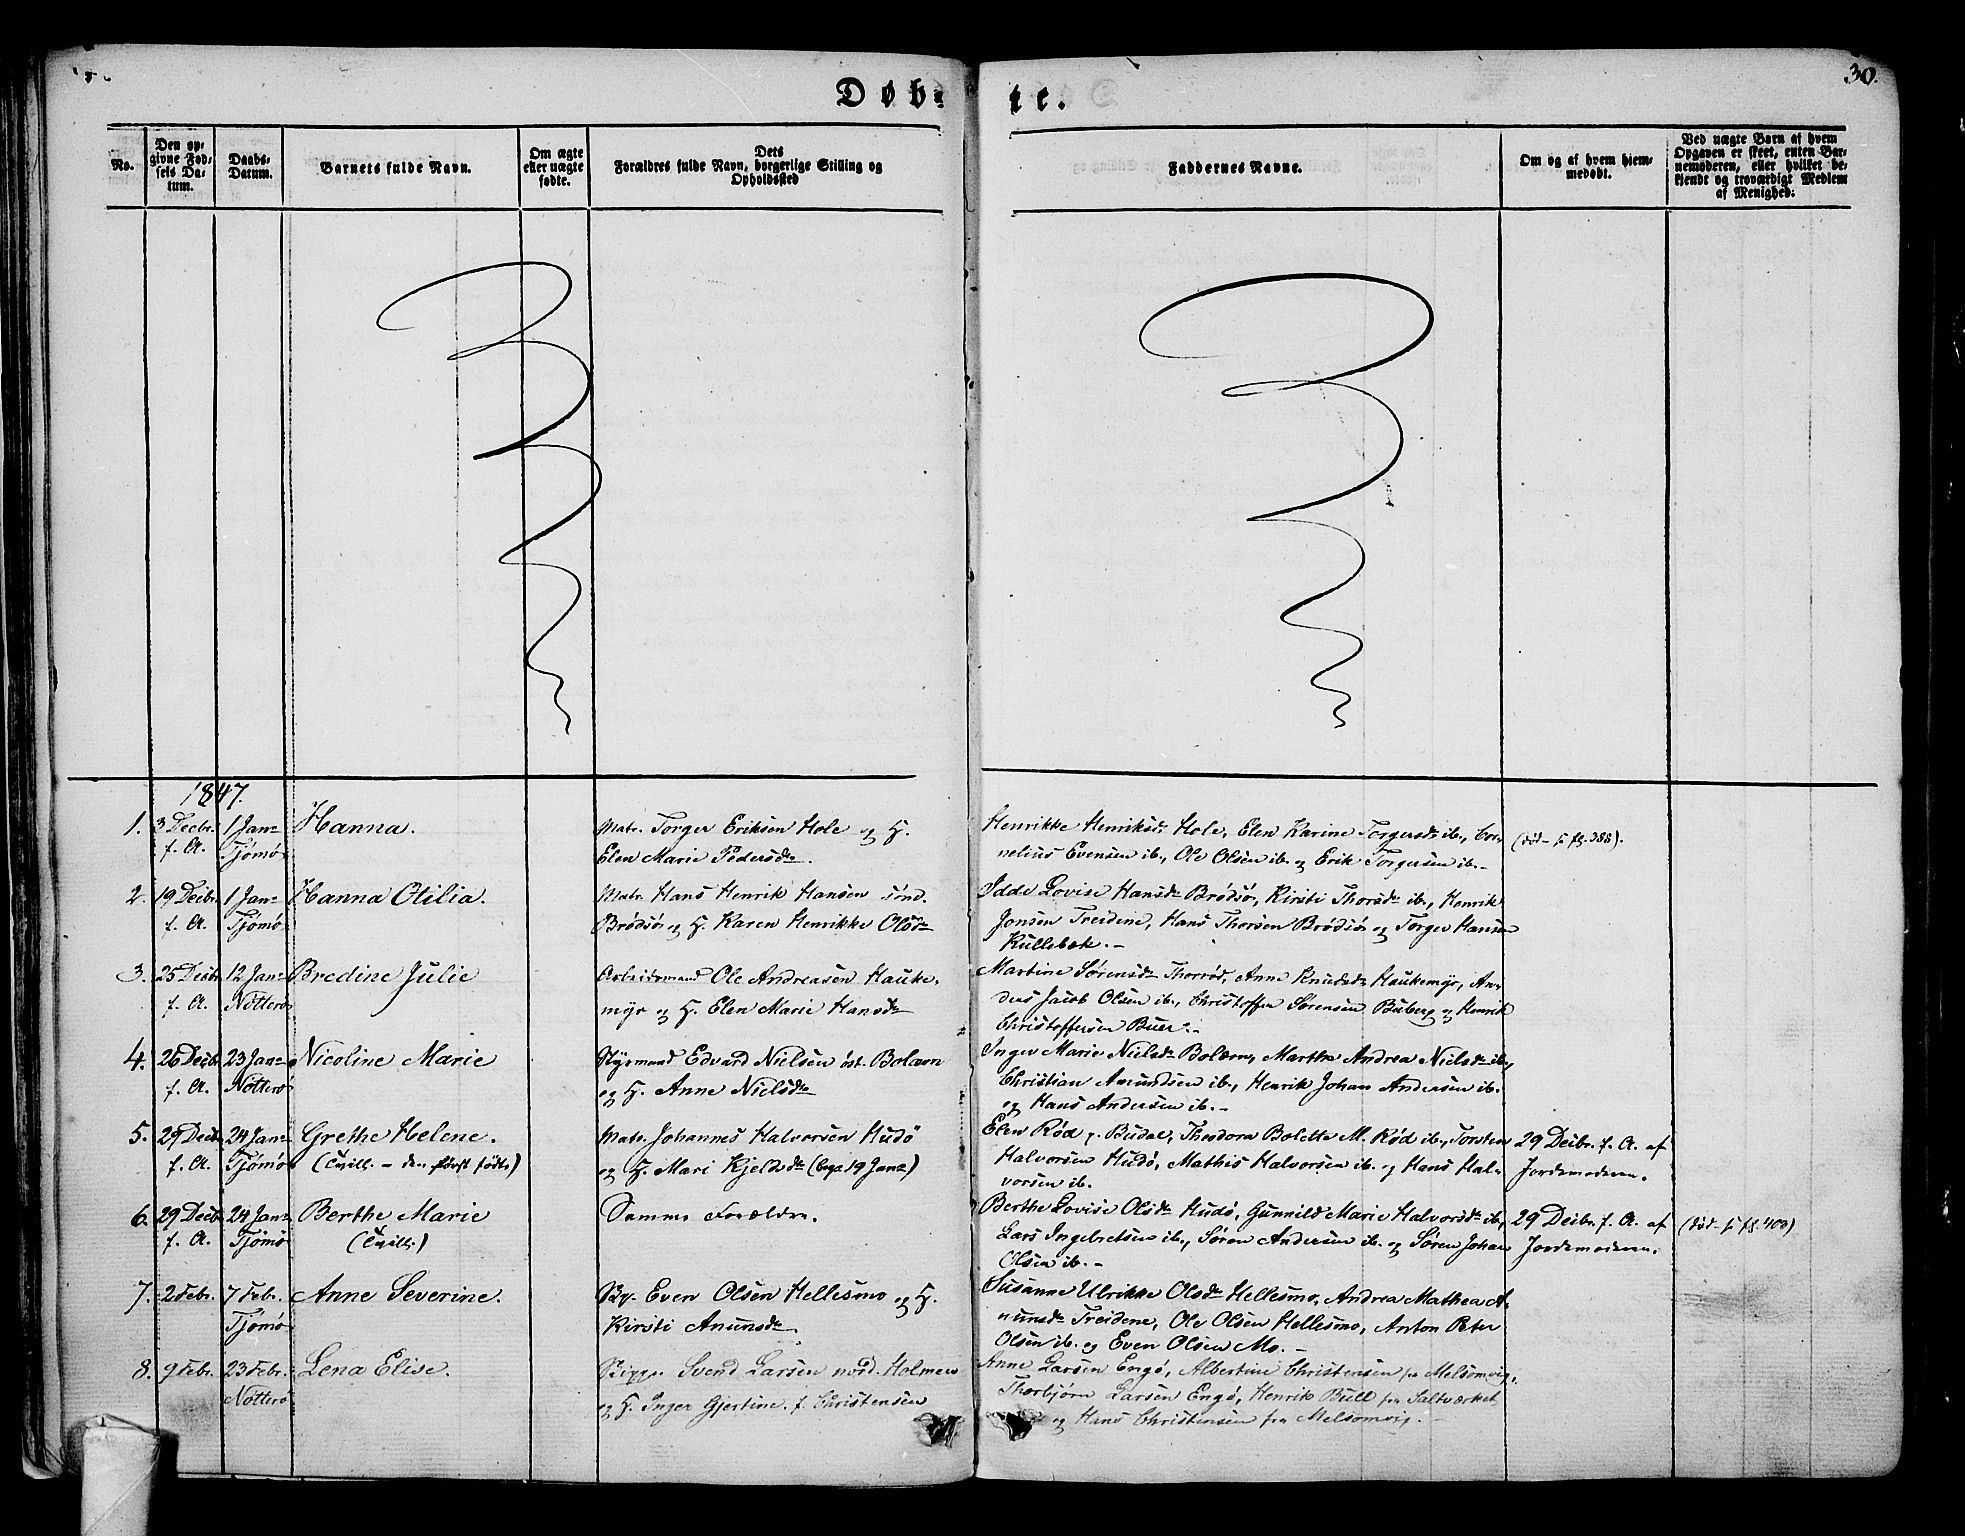 Døb- te.
30.
No.
Den op-
givne Fød-
sels Da-
tum.
Daabs-
Datum.
Barnets fulde Navn.
Om ægte
eller uægte
fødte.
Dets
Forældres fulde Navn, borgerlige Stilling og
Opholdssted
Faddernes Navne.
Om og af hvem hjem-
medøbt.
Ved uægte Barn af hvem
Opgaven er skeet, enten Bar-
nemoderen, eller hvilket be-
kjendt og troværdigt Medlem
af Menighed:
1847.
1. 3 Decbr. 1 Jan. Hanna. Matr. Torger Eriksen Hole og H. Henrikke Henriksd. Hole, Elen Karine Torgersd. ib., Cor- (død - fl. 388).
f. A. Tjømø Elen Marie Pedersd. nelius Evensen ib., Ole Olsen ib. og Erik Torgersen ib. -
2. 19 Decbr. 1 Jan. Hanna Otilia. Matr. Hans Henrik Hansen sönd. Idde Lovise Hansd. Brødsø, Kirsti Thorsd. ib., Henrik
f. A. Tjømø Brødsø og H. Karen Henrikke Olsd. Jonsen Treidene, Hans Thorsen Brødsø og Torger Hansen
Kullebæk. -
3. 25 Decbr. 12 Jan. Bredine Julie Arbeidsmand Ole Andreasen Hauke- Martine Sørensd. Thorrød, Anne Knudsd. Haukemyr, An-
f. A. Nøtterø myr og H. Elen Marie Hansd. ders Jacob Olsen ib., Christoffer Sørensen Buberg og Henrik
Christoffersen Buer. -
4. 26 Decbr. 23 Jan. Nicoline Marie Styrmand Edvard Nielsen öst. Bolæren Inger Marie Nielsd. Bolæren, Marthe Andrea Nielsd. ib.,
f. A. Nøtterø og H. Anne Nielsd. Christian Amundsen ib., Henrik Johan Andersen ib.
og Hans Andersen ib. -
5. 29 Decbr. 24 Jan. Grethe Helene. Matr. Johannes Halvorsen Hudø Elen Rød g. Budal, Theodora Bolette M. Rød ib., Torsten 29 Decbr. f. A. af
f. A. Tjømø (Tvill. - den først fødte) og H. Mari Kjeldsd. (begr. 19 Jan.) Halvorsen Hudø, Mathis Halvorsen ib. og Hans Hal- Jordemoderen.
vorsen ib.
6. 29 Decbr. 24 Jan. Berthe Marie Samme Forældre. Berthe Lovise Olsd. Hudø, Gunnild Marie Halvorsd. ib., 29 Decbr. f. A. af (død - fl. 403)
f. A. Tjømø (Tvill.) Lars Ingebretsen ib., Søren Andersen ib. og Søren Johan Jordemoderen.
Olsen ib. -
7. 2 Febr. 7 Febr. Anne Severine. Even Olsen Hellesmo og H. Susanne Ulrikke Olsd. Hellesmo, Andrea Mathea A-
Tjømø Kirsti Anunsd. nunsd. Treidene, Ole Olsen Hellesmo, Anton Peter
Olsen ib. og Even Olsen Mo. -
8. 9 Febr. 23 Febr. Lena Elise. Skipper Svend Larsen nord. Holmen Anne Larsen Engø, Albertine Christensen fra Melsomvig,
Nøtterø og H. Inger Gjertine f. Christensen Thorbjørn Larsen Engø, Henrik Bull fra Saltværket
og Hans Christensen fra Melsomvig. -